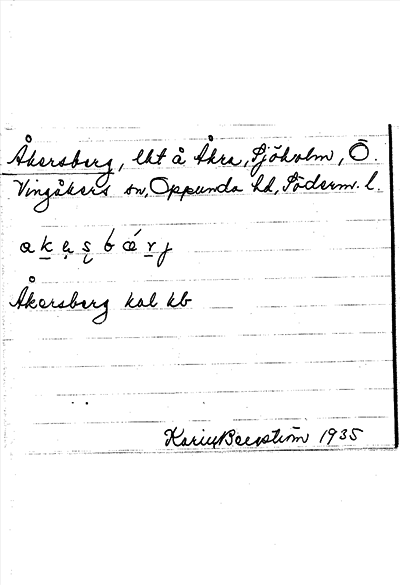 Åkersberg, lht å Åkra, Sjöholm, Ö.
Vingåkers sn, Oppunda hd, Söderm. l.
Åkersberg kal kb
Karin Bergström 1935